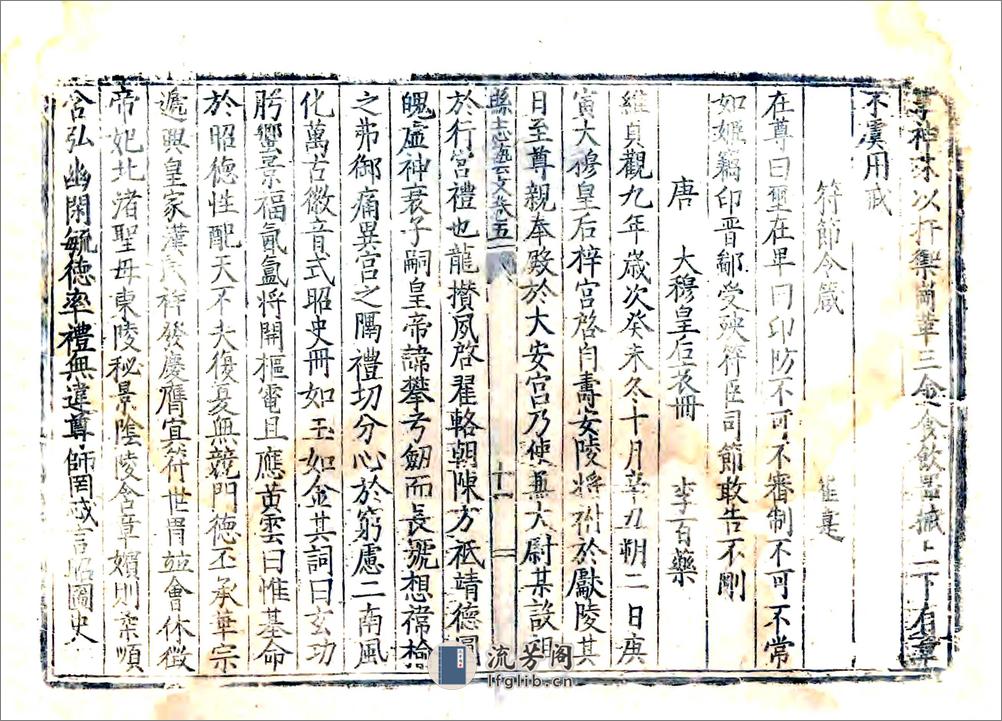 以杆禦 三 食飲 上下
不虞用戒
符節令箴 崔寔
在尊曰璽在卑曰印防不可不審制不可不常
如姬竊印晉鄙受殃符臣司節敢告不剛
唐 大穆皇后哀冊 李百藥
維貞觀九年歲次癸未冬十月辛丑朔二日庚
寅大穆皇后梓宮啓自壽安陵將祔於獻陵其
日至尊親奉殿於大安宮乃使兼大尉某設祖
於行宮禮也龍攢夙啓翟輅朝陳方祗靖德
縣志藝文卷五 十一
魄虛神哀子嗣皇帝諱攀弓劒而長號想禕褕
之弗御痛異宮之隅禮切分心於窮慮二南風
化萬古徽音式昭史冊如玉如金其詞曰玄功
肹蠁景福氤氳將開樞電且應黃雲曰惟基命
於昭德性配天不夫復夏無競門德丕承華宗
遞興皇家漢 祥發慶膺寘符世冑竝會休徵
帝妃北渚聖母東陵秘景陰陵含章嬪則柔順
含弘幽閑毓德率禮無違尊師罔忒言昭圖史
流芳阁
lfglib.cn